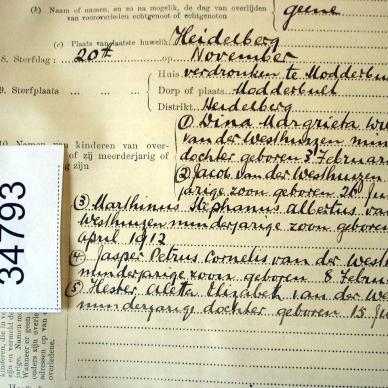 (b) Naam of namen, en zo na mogelik, de dag van overlijden
van vooroverleden echtgenoot of echtgenoten geene
(c) Plaats van laatste huwelik Heidelberg
8. Sterfdag : 20st op November
Huis verdronken te Modderbult
9. Sterfplaats Dorp of plaats Modderbult
Distrikt Heidelberg
10. Namen van kinderen van over-
of zij meerderjarig of
zijn
(1) Dina Margrieta
van der Westhuizen min
dochter geboren 3 Februar
(2) Jacob van der Westhuizen
jarige zoon geboren
(3) Marthinus Stephanus Albertus van
Westhuizen minderjarige zoon geboren
April 1912
(4) Jasper Petrus Cornelis van der West
minderjarige zoon geboren 8 Februa
(5) Hester Aletta Elizabeth van der We
minderjarige dochter geboren 15 Ju
34793